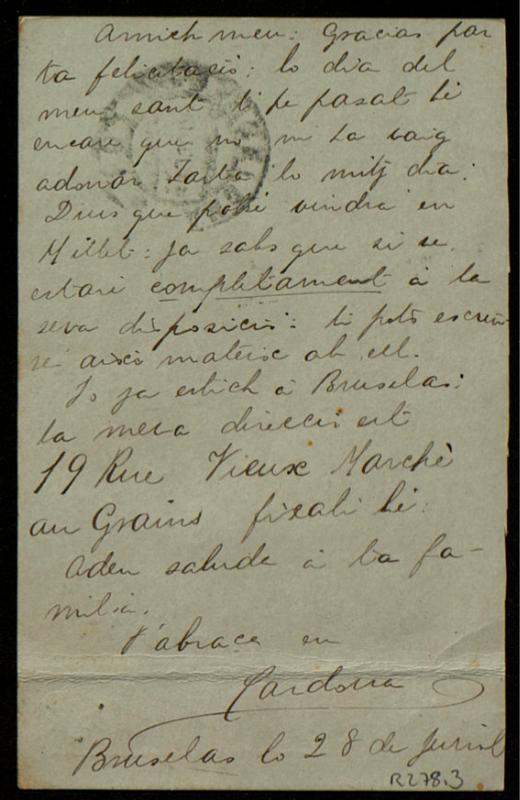 Amich meu: Gracias per
ta felicitació: lo dia del
meu sant li pe pasat bé
encare que no mi ta vaig
adonar tarba lo mitj dia:
Dius que potsé vindrá en
Millet: ja sabs que si ve
estaré completament á la
seva disposició: li pots escriu-
re aixó mateix ab ell.
Jo ja estich á Bruselas:
la meva direcció est
19 Rue Vieux Marchè
au Grains fixati bé.
Adeu saluda á la fa-
milia.
T'abraça en
Cardona
Bruselas lo 28 de Juriol
R278.3